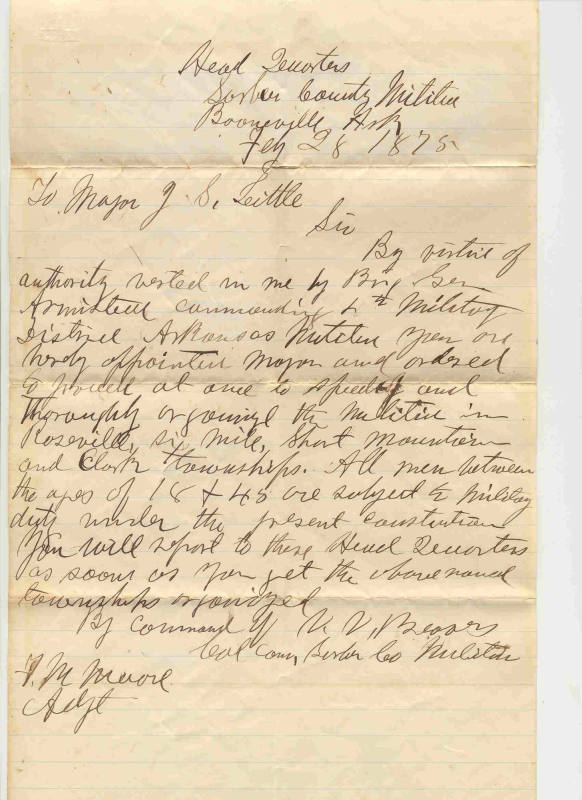 Head Quarters
County Militia
Booneville Ark
Feby 28 1875
To Major J. S. Little
Sir
By virtue of
authority vested in me by Brig Gen
Armistead commanding 4th Military
District Arkansas Militia you are
herby appointed Major and ordered
to proceed at once to speedily and
thoroughly organize the Militia in
Roseville, six mile, Short Mountain
and Clark townships. All men between
the ages of 18 & 45 are subject to Military
duty under the present constitution
You will report to these Head Quarters
as soon as you get the above named
townships organized
By command of Beavers
Col Comr, Co Militia
F. M. Moore
Adjt